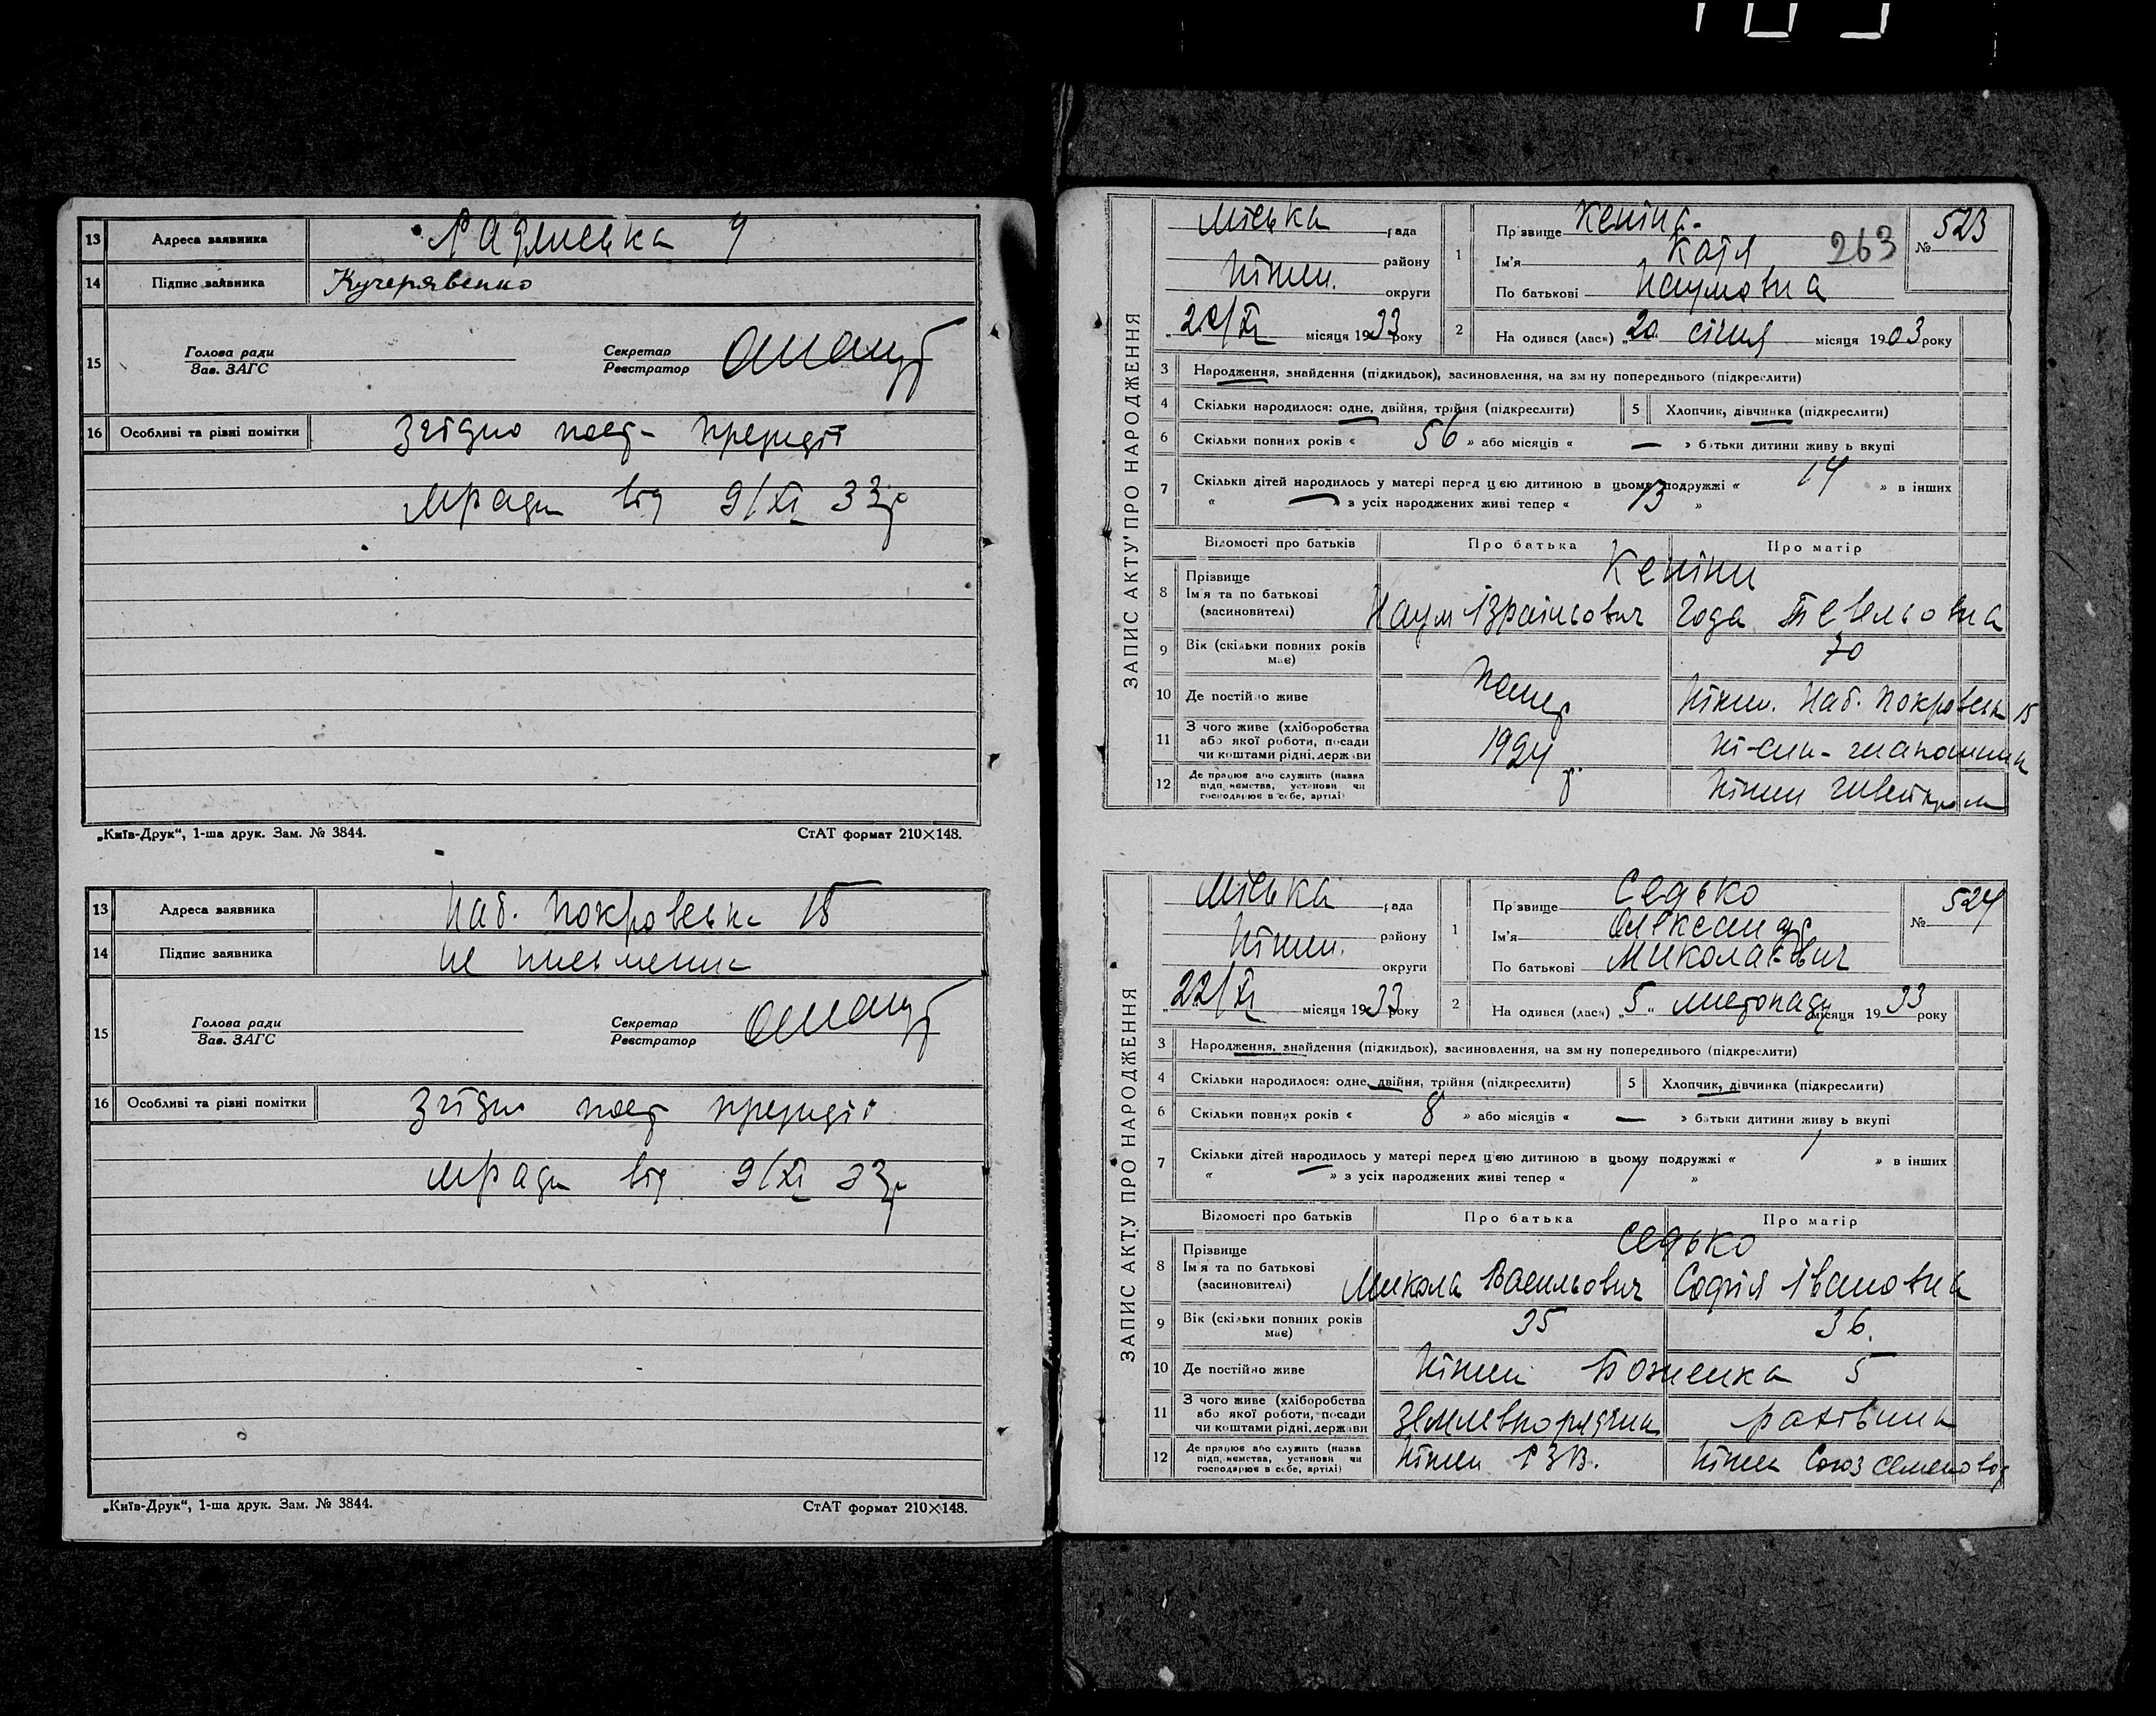 13 Адреса заявника Радянська 4
14 Підпис заявника Кучерявенко
15 Голова ради Зав. ЗАГС Секретар Реєстратор
16 Особливі та різні помітки Згідно пост. президії
мради від 9/XI 33 р
„Київ-Друк“, 1-ша друк. Зам. № 3844. СтАТ формат 210×148.
13 Адреса заявника Наб. Покровська 15
14 Підпис заявника не письменна
15 Голова ради Зав. ЗАГС Секретар Реєстратор
16 Особливі та різні помітки Згідно пост президії
мради від 9/XI 33 р
„Київ-Друк“, 1-ша друк. Зам. № 3844. СтАТ формат 210×148.
ЗАПИС АКТУ ПРО НАРОДЖЕННЯ
Міська рада
району
Ніжин. округи
22/XI місяця 1933 року
1 Прізвище Кеніна
Ім'я Катя
По батькові Наумовна
263
№ 523
2 Народився (лася) „20“ січня місяця 1903 року
3 Народження, знайдення (підкидьок), засиновлення, на зміну попереднього (підкреслити)
4 Скільки народилося: одне, двійня, трійня (підкреслити) 5 Хлопчик, дівчинка (підкреслити)
6 Скільки повних років « 56 » або місяців « — » батьки дитини живуть вкупі
7 Скільки дітей народилось у матері перед цією дитиною в цьому подружжі « 14 » в інших
« — » з усіх народжених живі тепер « 13 »
Відомості про батьків Про батька Про матір
8 Прізвище Ім'я та по батькові (засиновителі) Кеніни
Наум Ізраїльович Года Тевельовна
9 Вік (скільки повних років має) 70
10 Де постійно живе Помер Ніжин. Наб. Покровськ 15
11 З чого живе (хліборобства або якої роботи, посади чи коштами рідні, держави 1924 р.
12 Де працює або служить (назва підприємства, установи чи господарює в себе, артілі) Ніжин
ЗАПИС АКТУ ПРО НАРОДЖЕННЯ
Міська рада
Ніжин. району
округи
22/XI місяця 1933 року
1 Прізвище Седько
Ім'я Олександр
По батькові Миколаєвич
№ 524
2 Народився (лася) „5“ листопаду місяця 1933 року
3 Народження, знайдення (підкидьок), засиновлення, на зміну попереднього (підкреслити)
4 Скільки народилося: одне, двійня, трійня (підкреслити) 5 Хлопчик, дівчинка (підкреслити)
6 Скільки повних років « 8 » або місяців « — » батьки дитини живуть вкупі
7 Скільки дітей народилось у матері перед цією дитиною в цьому подружжі « 1 » в інших
« — » з усіх народжених живі тепер « 1 »
Відомості про батьків Про батька Про матір
8 Прізвище Ім'я та по батькові (засиновителі) Седько
Микола Васильович Софія Івановна
9 Вік (скільки повних років має) 35 36.
10 Де постійно живе Ніжин Боженка 5
11 З чого живе (хліборобства або якої роботи, посади чи коштами рідні, держави Землевпорядчик рахівник
12 Де працює або служить (назва підприємства, установи чи господарює в себе, артілі) Ніжин РЗВ. Ніжин Союз семеновод